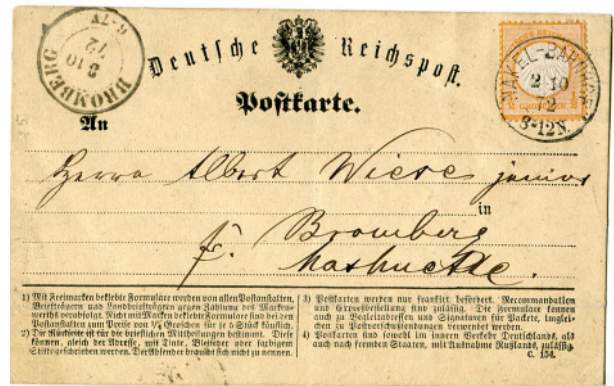 Deutsche Reichspost.
Postkarte.
BROMBERG
3 10
72
6-7V
NAKEL-BAHNHOF
2 10
72
8-12N.
An
Herrn Albert Wiese junior
in
Bromberg
1) Mit Freimarken beklebte Formulare werden von allen Postanstalten,
Briefträgern und Landbriefträgern gegen Zahlung des Marken-
werths verabfolgt. Nicht mit Marken beklebte Formulare sind bei den
Postanstalten zum Preise von ¼ Groschen für je 5 Stück käuflich.
2) Die Rückseite ist für die brieflichen Mittheilungen bestimmt. Diese
können, gleich der Adresse, mit Tinte, Bleifeder oder farbigem
Stifte geschrieben werden. Der Absender braucht sich nicht zu nennen.
3) Postkarten werden nur frankirt befördert. Recommandation
und Expreßbestellung sind zulässig. Die Formulare können
auch zu Begleitadressen und Signaturen für Packete, imglei-
chen zu Postvorschußsendungen verwendet werden.
4) Postkarten sind sowohl im innern Verkehr Deutschlands, als
auch nach fremden Staaten, mit Ausnahme Rußlands, zulässig.
C. 154.